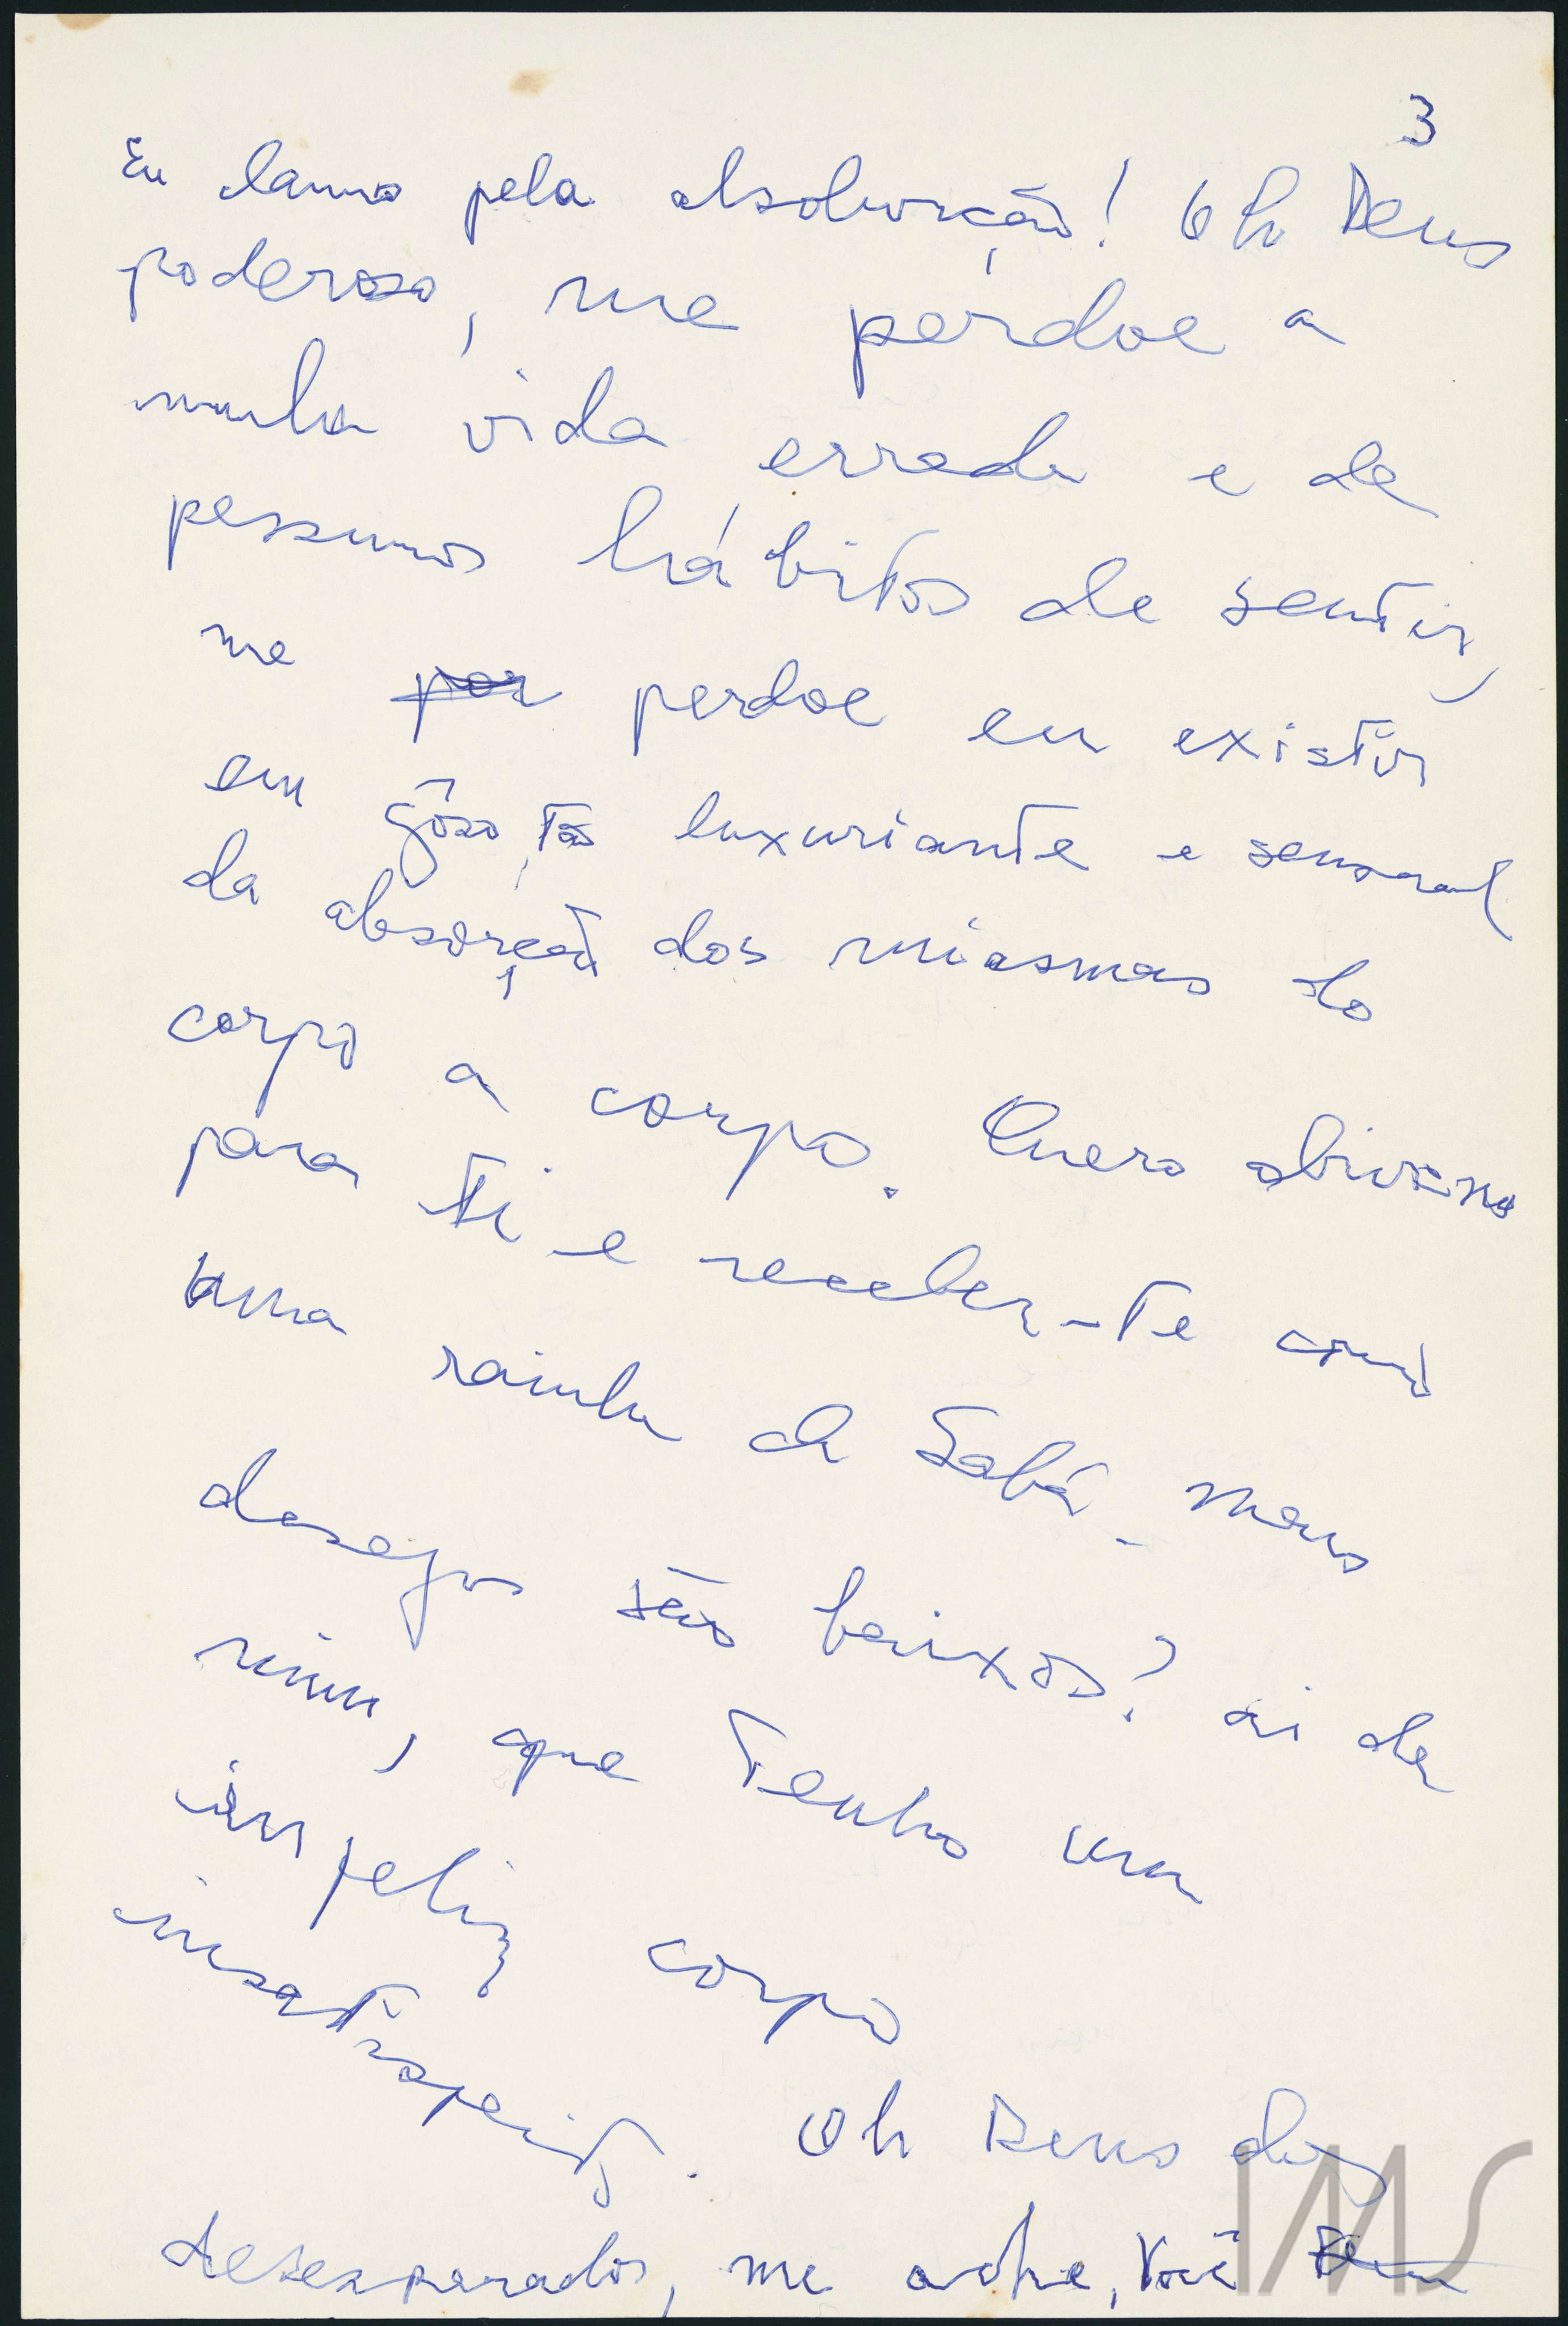 3
Eu clamo pela absolvição! Oh Deus
poderoso, me perdoe a
minha vida errada e de
pessimos hábitos de sentir,
me por perdoe eu existir
em gôso tão luxuriante e sensual
da absorção dos miasmas do
corpo a corpo. Quero abrir-me
para ti e receber-te como
uma rainha de Sabá. Meus
desejos são baixos? ai de
mim, que tenho um
infeliz corpo
insatisfeito. Oh Deus dos
desesperados, me ache, Você
IMS